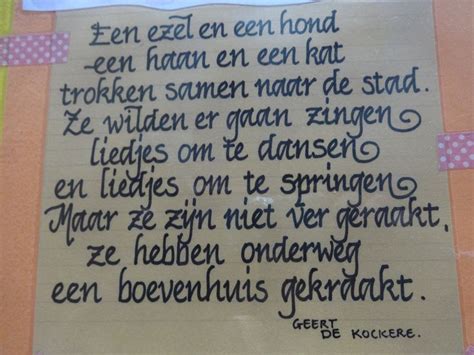 Een ezel en een hond
een haan en een kat
trokken samen naar de stad.
Ze wilden er gaan zingen
liedjes om te dansen
en liedjes om te springen
Maar ze zijn niet ver geraakt.
ze hebben onderweg
een boevenhuis gekraakt.
GEERT
DE KOCKERE.